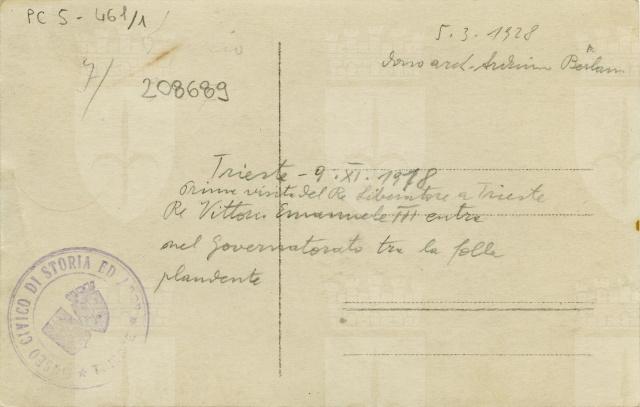 PC 5 - 461/1
5. 3. 1928
dono arch. Arduino Berlam
7/
208689
Trieste - 9. XI. 1918
prima visita del Re Liberatore a Trieste
Re Vittorio Emanuele III entra
nel Governatorato tra la folla
plaudente
MUSEO CIVICO DI STORIA ED ARTE * TRIESTE *